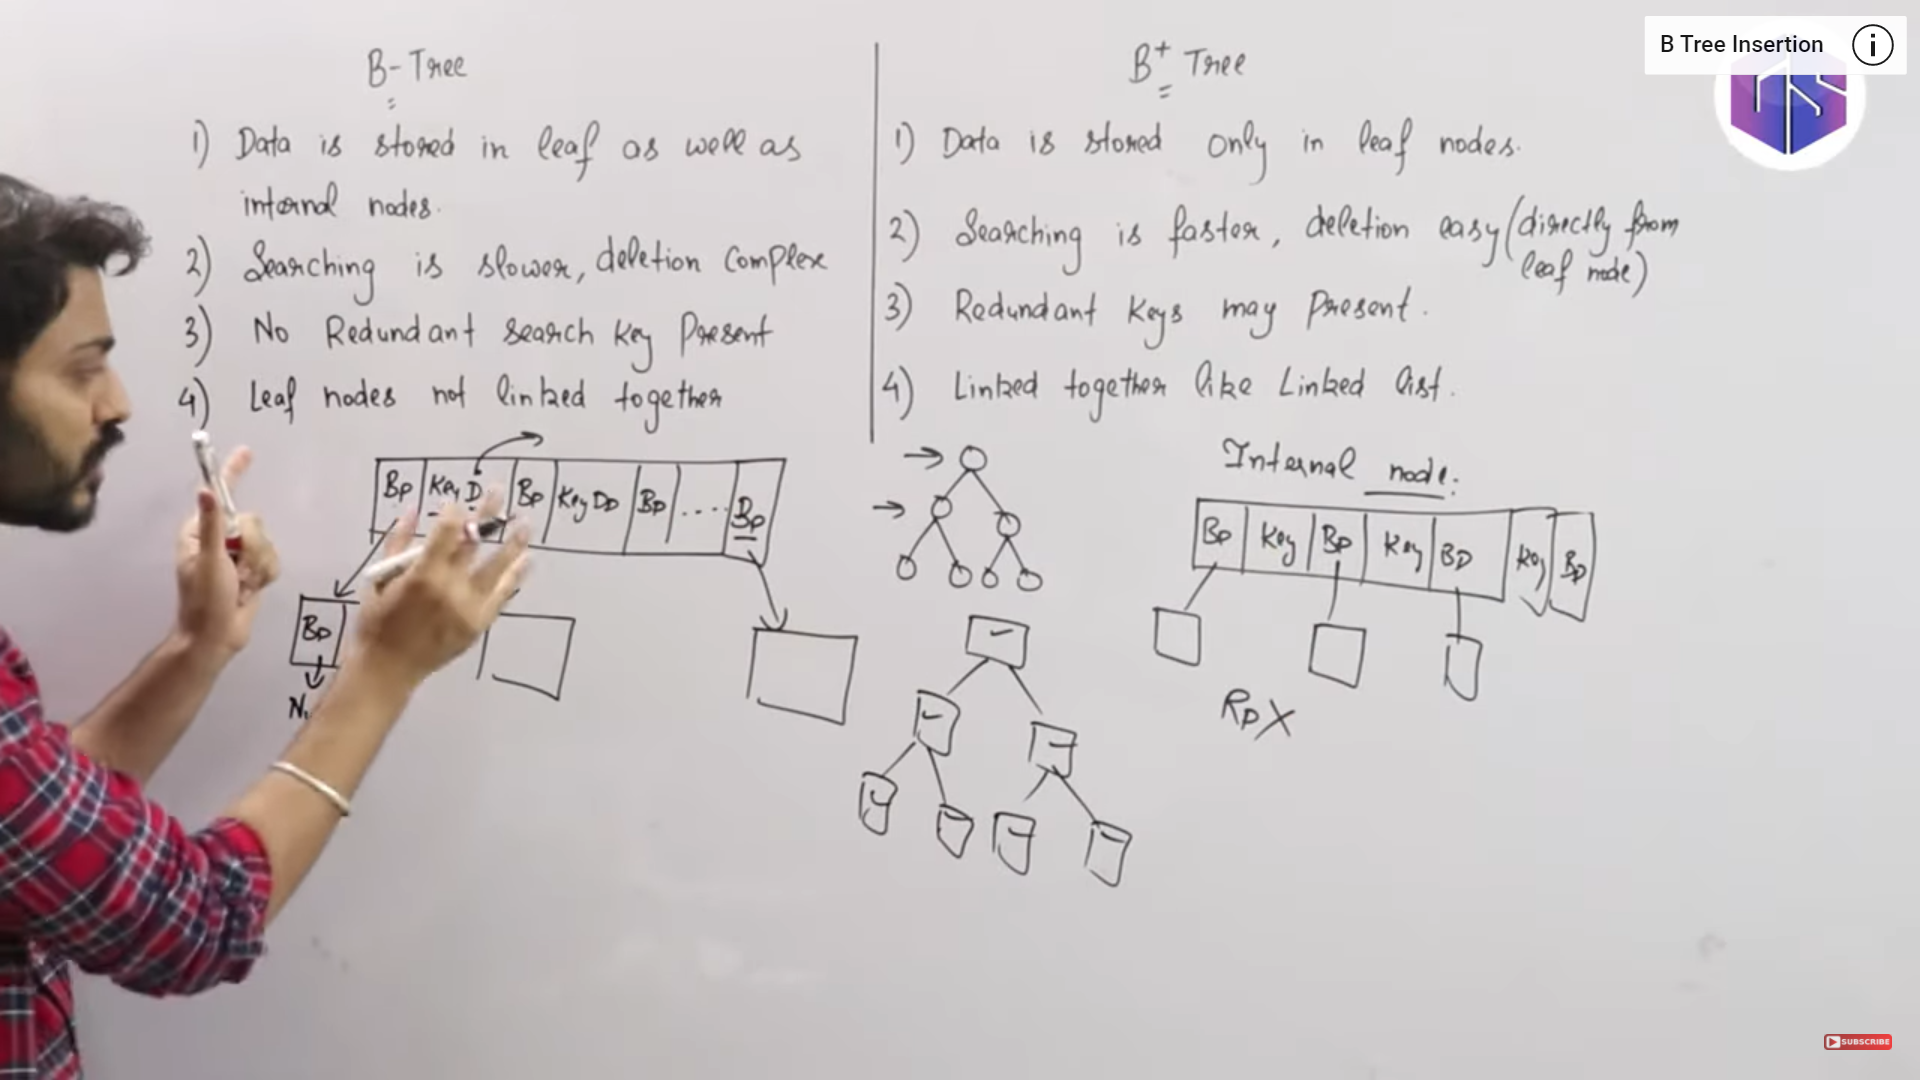 B Tree Insertion
B- Tree
1) Data is stored in leaf as well as
internal nodes.
2) Searching is slower, deletion complex
3) No Redundant search key Present
4) Leaf nodes not linked together
Bp Key D Bp Key Dp Bp .... Bp
Bp
B+ Tree
1) Data is stored only in leaf nodes.
2) Searching is faster, deletion easy (directly from
leaf node)
3) Redundant keys may Present.
4) Linked together like Linked list.
Internal node:
Bp Key Bp Key Bp Key Bp
Rp X
SUBSCRIBE